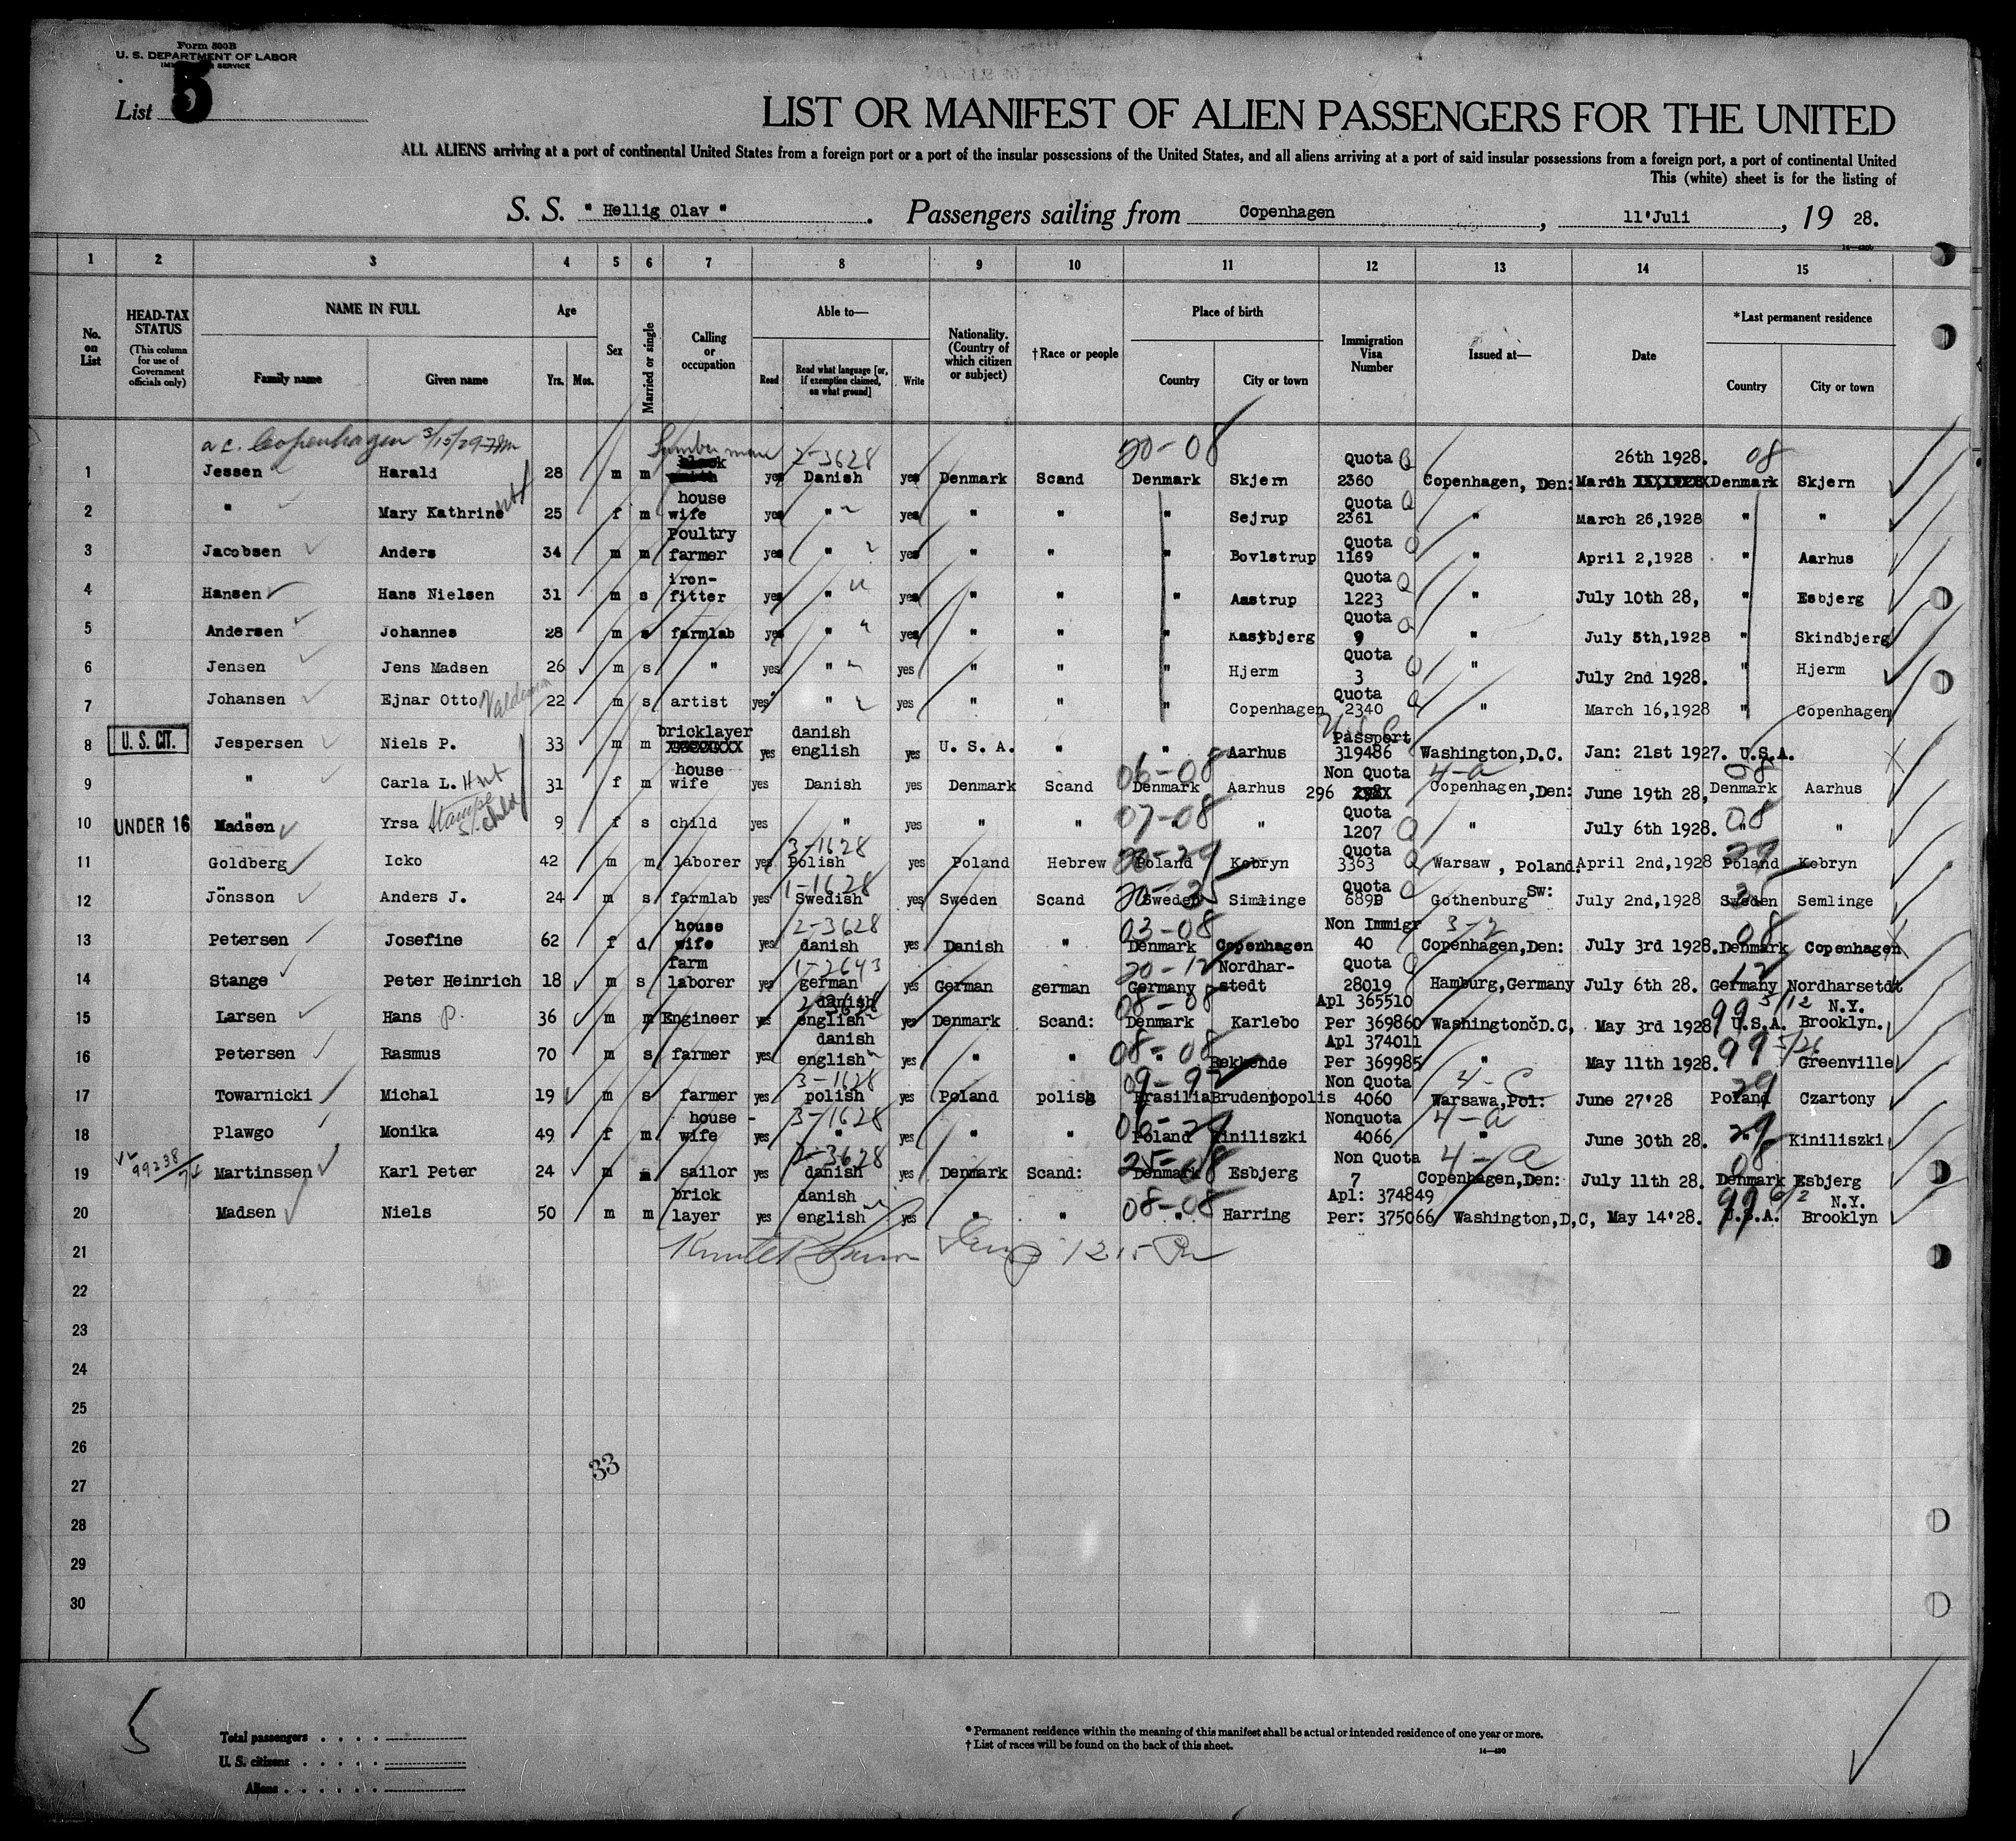 Form 500B
U. S. DEPARTMENT OF LABOR
IMMIGRATION SERVICE
List 5
LIST OR MANIFEST OF ALIEN PASSENGERS FOR THE UNITED
ALL ALIENS arriving at a port of continental United States from a foreign port or a port of the insular possessions of the United States, and all aliens arriving at a port of said insular possessions from a foreign port, a port of continental United
This (white) sheet is for the listing of
S. S. " Hellig Olav " . Passengers sailing from Copenhagen , 11'Juli , 19 28.
1 2 3 4 5 6 7 8 9 10 11 12 13 14 15
No. on List
HEAD-TAX STATUS
(This column for use of Government officials only)
NAME IN FULL
Family name Given name
Age
Yrs. Mos.
Sex
Married or single
Calling or occupation
Able to—
Read
Read what language [or, if exemption claimed, on what ground]
Write
Nationality. (Country of which citizen or subject)
†Race or people
Place of birth
Country City or town
Immigration Visa Number
Issued at—
Date
*Last permanent residence
Country City or town
a c. Copenhagen 3/15/29
1 Jessen Harald 28 m m Lumberman yes 2-3628 Danish yes Denmark Scand 20-08 Denmark Skjern Quota 2360 Copenhagen, Den: 26th 1928. March 08 Denmark Skjern
2 " Mary Kathrine 25 f m house wife yes " yes " " " Sejrup Quota 2361 " March 26,1928 " "
3 Jacobsen Anders 34 m m Poultry farmer yes " yes " " " Bovlstrup Quota 1169 " April 2,1928 " Aarhus
4 Hansen Hans Nielsen 31 m s iron-fitter yes " yes " " " Aastrup Quota 1223 " July 10th 28, " Esbjerg
5 Andersen Johannes 28 m s farmlab yes " yes " " " Kastbjerg Quota 9 " July 5th,1928 " Skindbjerg
6 Jensen Jens Madsen 26 m s " yes " yes " " " Hjerm Quota 3 " July 2nd 1928. " Hjerm
7 Johansen Ejnar Otto Valdemar 22 m s artist yes " yes " " " Copenhagen Quota 2340 " March 16,1928 " Copenhagen
8 U. S. CIT. Jespersen Niels P. 33 m m bricklayer yes danish english yes U. S. A. " " Aarhus Passport 319486 Washington,D.C. Jan: 21st 1927. U.S.A.
9 " Carla L. 31 f m house wife yes Danish yes Denmark Scand 06-08 Denmark Aarhus Non Quota 296 4-a Copenhagen,Den: June 19th 28, 08 Denmark Aarhus
10 UNDER 16 " Madsen Yrsa child 9 f s child yes " yes " " 07-08 " " Quota 1207 " July 6th 1928. 08 " "
11 Goldberg Icko 42 m m laborer yes 3-1628 Polish yes Poland Hebrew 20-29 Poland Kobryn Quota 3363 Warsaw , Poland. April 2nd,1928 29 Poland Kobryn
12 Jönsson Anders J. 24 m s farmlab yes 1-1628 Swedish yes Sweden Scand 20-35 Sweden Simlinge Quota 689B Gothenburg Sw: July 2nd,1928 35 Sweden Semlinge
13 Petersen Josefine 62 f d house wife yes 2-3628 danish yes Danish " 03-08 Denmark Copenhagen Non Immigr 40 3-2 Copenhagen,Den: July 3rd 1928. 08 Denmark Copenhagen
14 Stange Peter Heinrich 18 m s farm laborer yes 1-2643 german yes German german 20-12 Germany Nordhar-stedt Quota 28019 Hamburg,Germany July 6th 28. 12 Germany Nordharsetdt
15 Larsen Hans P. 36 m m Engineer yes danish english yes Denmark Scand: 08-08 Denmark Karlebo Apl 365510 Per 369860 Washington D.C, May 3rd 1928 99 5/12 U.S.A. N.Y. Brooklyn.
16 Petersen Rasmus 70 m s farmer yes danish english yes " " 08-08 " Apl 374011 Per 369985 " May 11th 1928. 99 5/26 Greenville
17 Towarnicki Michal 19 m s farmer yes 3-1628 polish yes Poland polish 09-92 Brasilia Brudentopolis Non Quota 4060 4-C Warsawa,Pol: June 27'28 29 Poland Czartony
18 Plawgo Monika 49 f m house - wife yes 3-1628 " yes " " 06-29 Poland Kiniliszki Nonquota 4066 4-a " June 30th 28. 29 " Kiniliszki
19 99238 Martinssen Karl Peter 24 m sailor yes 2-3628 danish yes Denmark Scand: 25-08 Denmark Esbjerg Non Quota 7 4-a Copenhagen,Den: July 11th 28. 08 Denmark Esbjerg
20 Madsen Niels 50 m m brick layer yes danish english yes " " 08-08 " Harring Apl: 374849 Per: 375066 Washington,D,C, May 14'28. 99 6/2 U.S.A. N.Y. Brooklyn
21
22
23
24
25
26
33
27
28
29
30
5
Total passengers
U. S. citizens
Aliens
* Permanent residence within the meaning of this manifest shall be actual or intended residence of one year or more.
† List of races will be found on the back of this sheet.
14—430